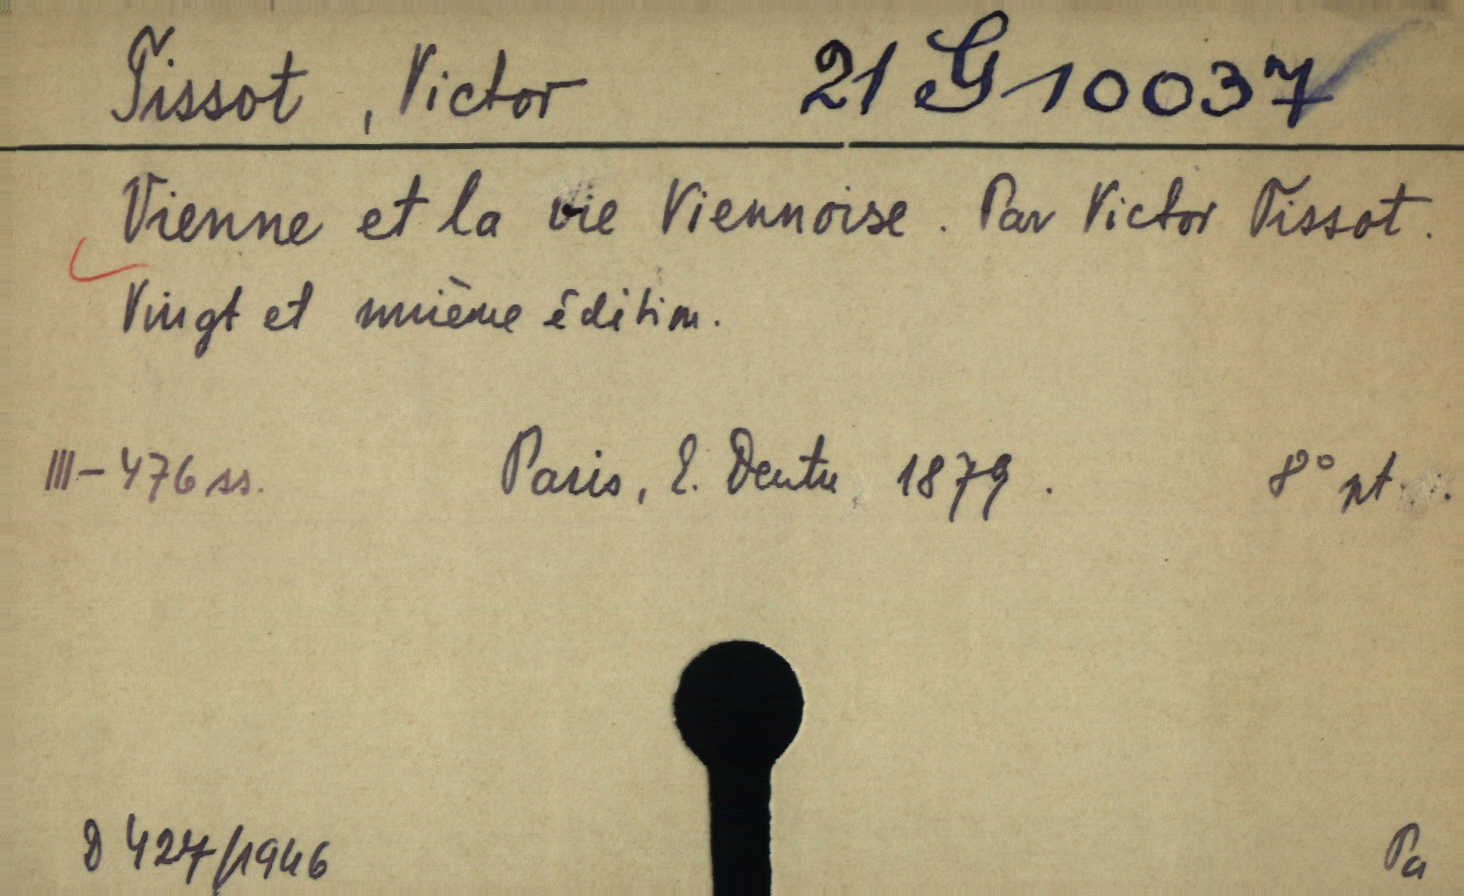 Tissot, Victor 21 G 10037
Vienne et la vie Viennoise. Par Victor Tissot.
Vingt et unième édition.
III-476 ss. Paris, E. Dentu, 1879. 8° pt.
D 427/1946 Pa